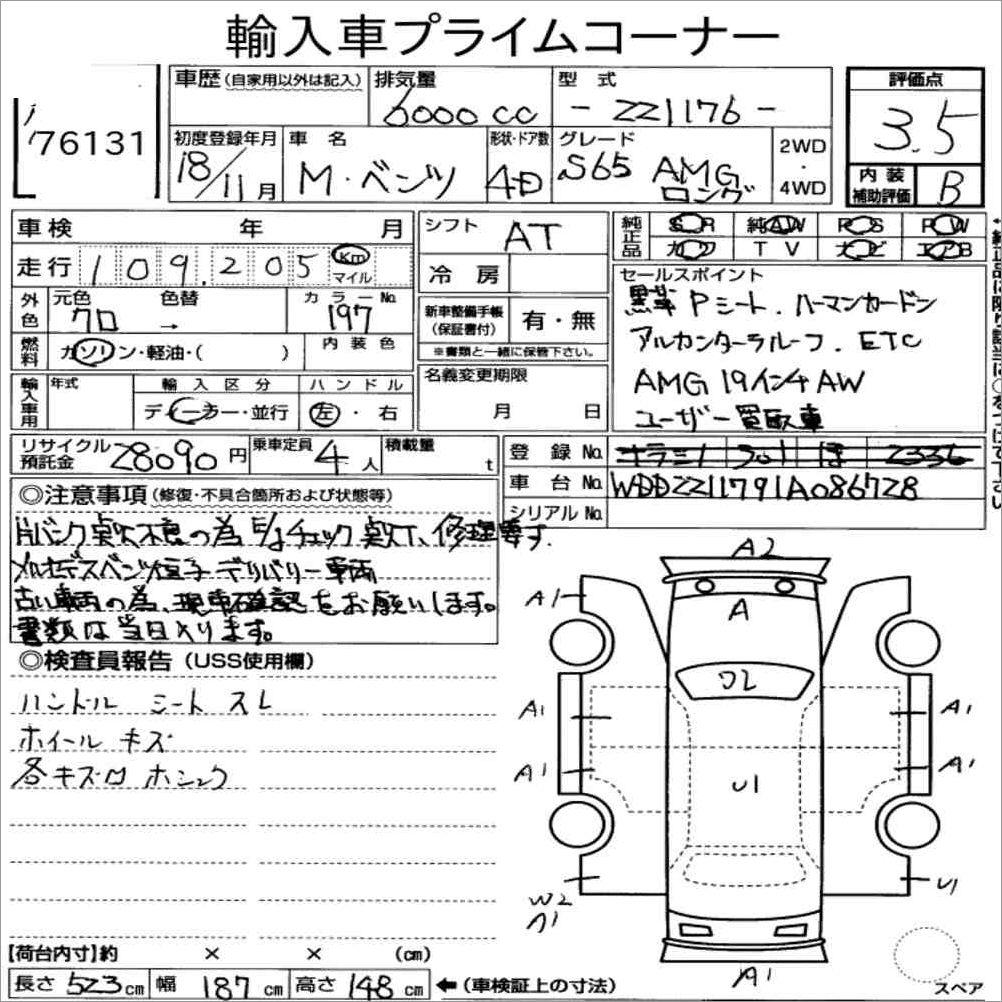 輸入車プライムコーナー
76131
車歴(自家用以外は記入)
排気量 6000 cc
型式 - 221176 -
評価点 3.5
初度登録年月 18/11月
車名 M・ベンツ
形状・ドア数 4D
グレード S65 AMG ロング
2WD・4WD
内装補助評価 B
車検 年 月
シフト AT
純正品 SR 純AW PS PW
カワ TV ナビ エアB
走行 109,205 Km マイル
冷房
セールスポイント
黒革 Pシート.ハーマンカードン
アルカンターラルーフ. ETC
AMG 19インチAW
ユーザー買取車
外色 元色 クロ 色替 → カラーNo. 197
新車整備手帳(保証書付) 有・無
※書類と一緒に保管下さい。
燃料 ガソリン・軽油・( ) 内装色
名義変更期限 月 日
輸入車用 年式 輸入区分 ディーラー・並行 ハンドル 左・右
リサイクル預託金 28090円 乗車定員 4人 積載量 t
登録No.
車台No. WDD2211791A086728
シリアルNo.
◎注意事項(修復・不具合箇所および状態等)
片バンク点火不良の為 E/gチェック点灯、修理要す.
メルセデスベンツ デリバリー車両
古い車両の為、現車確認をお願いします。
書類は当日入ります。
◎検査員報告(USS使用欄)
ハンドル シート スレ
ホイール キズ
各キズロ ホシュウ
A2
A1
A
A1 A1
A1 A1
U1
W2
U1
A1
スペア
【荷台内寸】約 × × (cm)
長さ 523 cm 幅 187 cm 高さ 148 cm ←(車検証上の寸法)